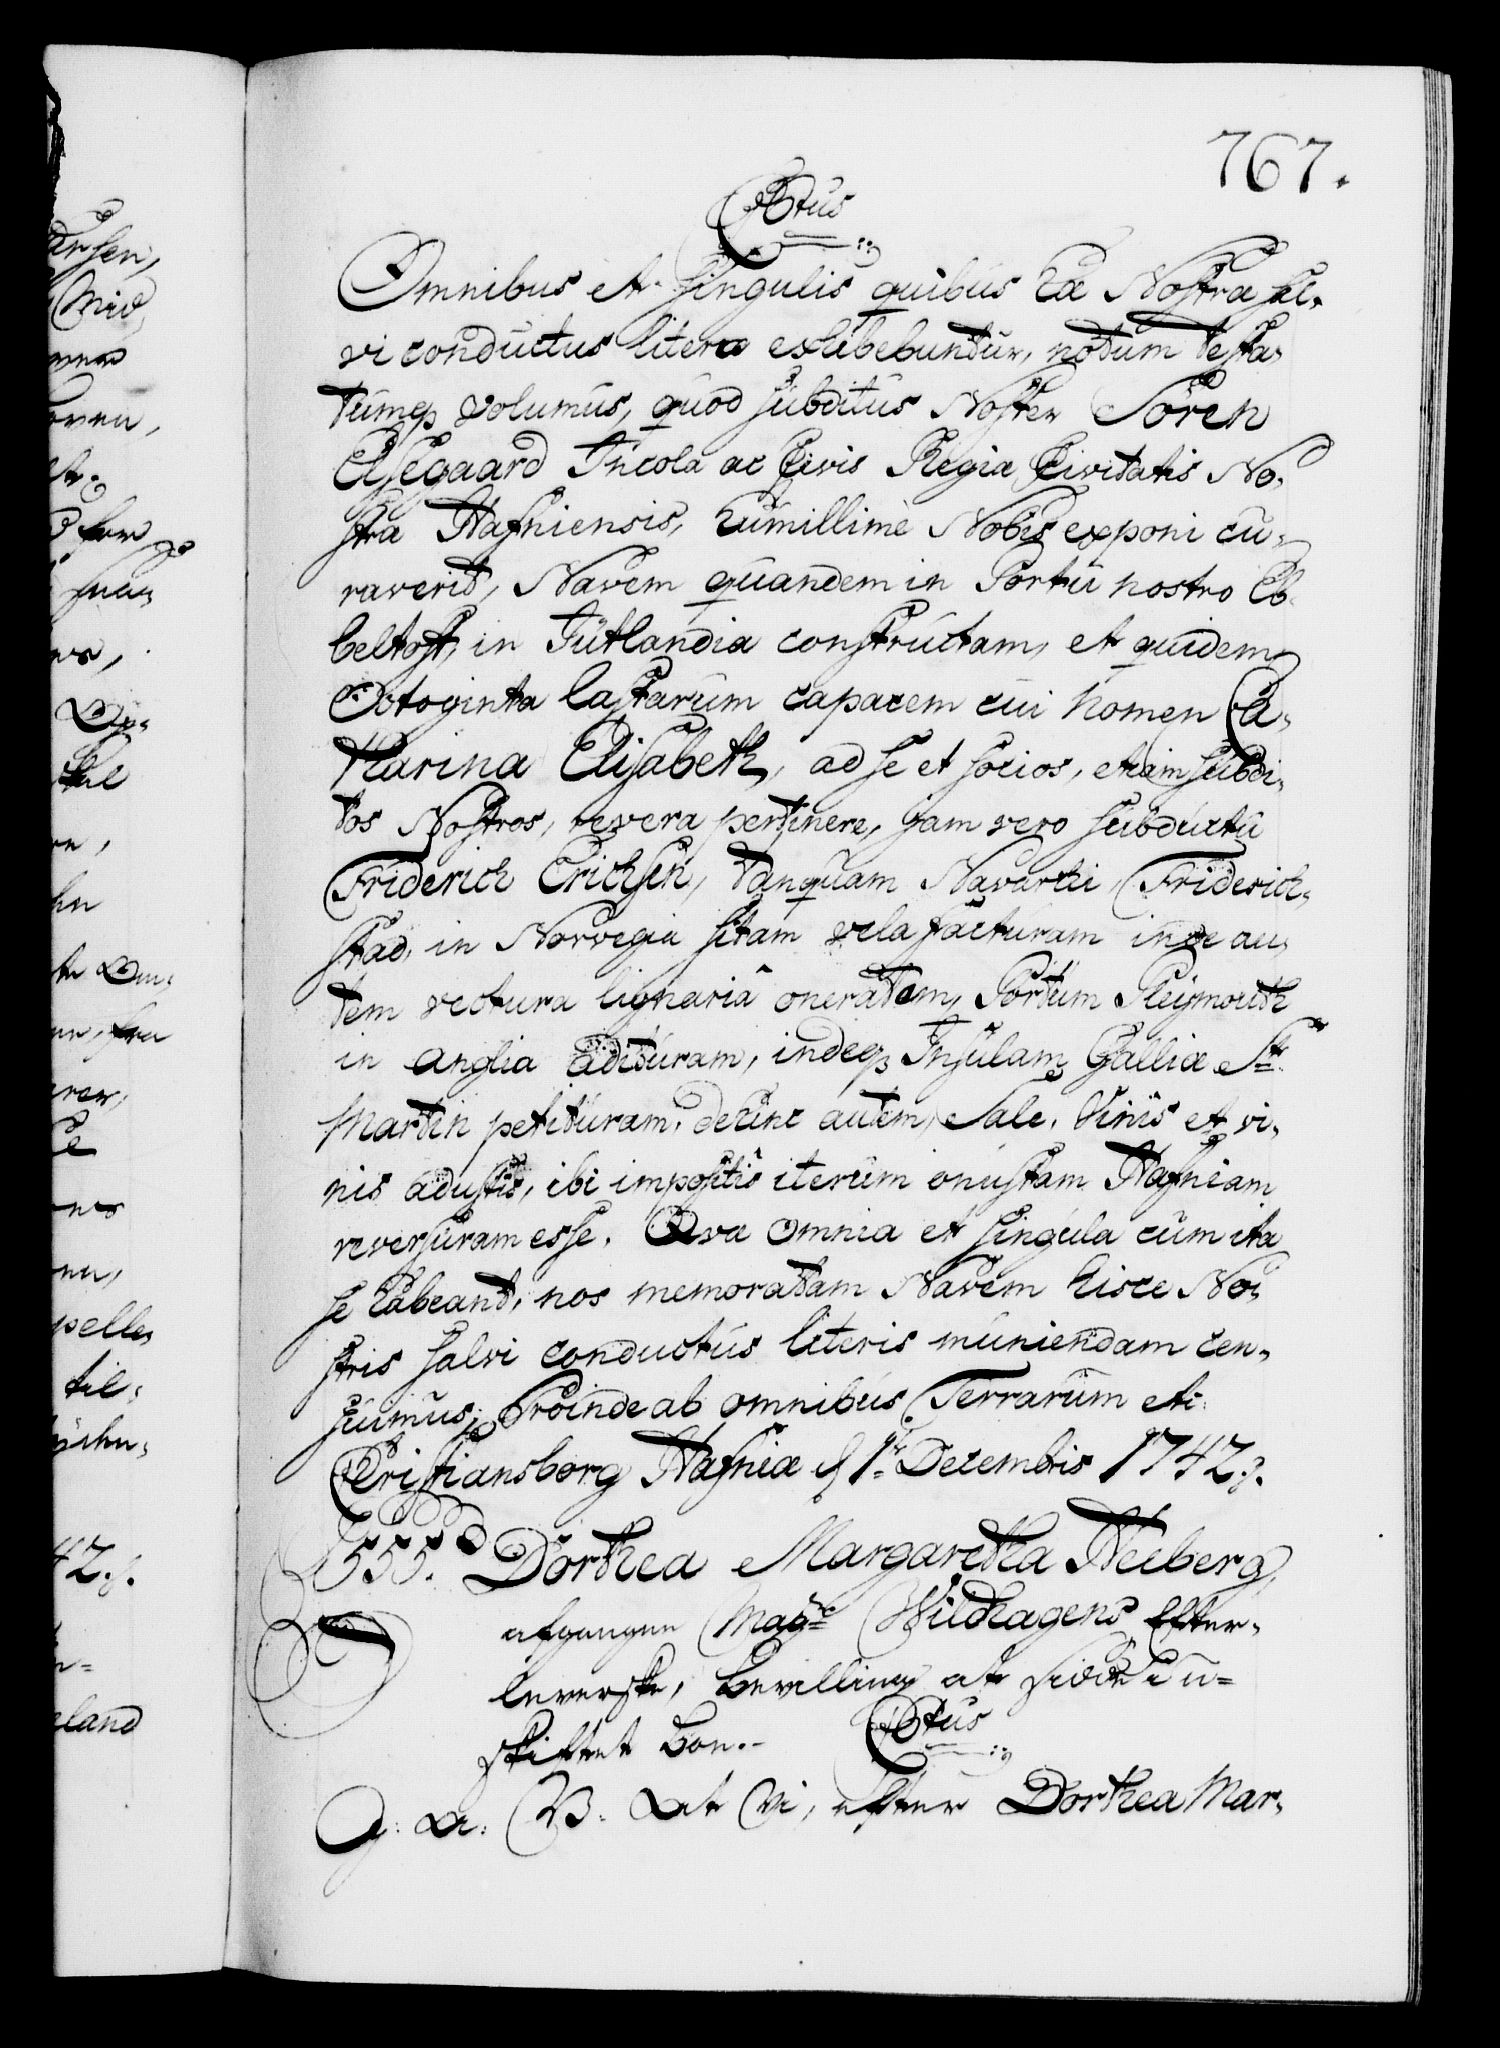 767.
Ctus
Omnibus et singulis quibus Eæ Nostræ sal-
vi conductus literæ exhibebuntur, notum testa-
tumq3 volumus, quod subditus Noster Sören
Elsegaard Incola ac Civis Regiæ Civitatis No-
stræ Hafniensis, humillimè Nobis exponi cu-
raverit, Navem quandem in Portu nostro Eb-
beltoft, in Jutlandia constructam, et quidem
Octoginta lastarum capacem cui nomen Ca-
tharina Elisabeth, ad se et socios, etiam subdi-
tos Nostros, revera pertinere, jam vero subductu
Friderich Erichsen, tanquam Navarchi, Friderich-
stad, in Norvegia sitam vela facturam inde au-
tem vectura lignariâ oneratam, Portum Pleijmouth
in Anglia adituram, indeq3 Insulam Galliæ St
Martin petituram, dehinc autem, Sale, Vinis et vi-
nis adustis, ibi impositis iterum onustam Hafniam
reversuram esse. Qvæ omnia et singula cum ita
se habeant, nos memoratam Navem hisce No-
stris salvi conductus literis muniendam cen-
suimus; Proinde ab omnibus Terrarum etc:
Christiansborg Hafniæ d 1te Decembris 1742.
555. Dorthea Margaretha Heiberg,
afgangne Magr Wildhagens Efter-
leverske, Bevilling at sidde i u-
skiftet Boe.
Ctus
G: A: V: At Vi, efter Dorthea Mar-
arsen,
Mid
oven,
42.
pelle
til-
eland